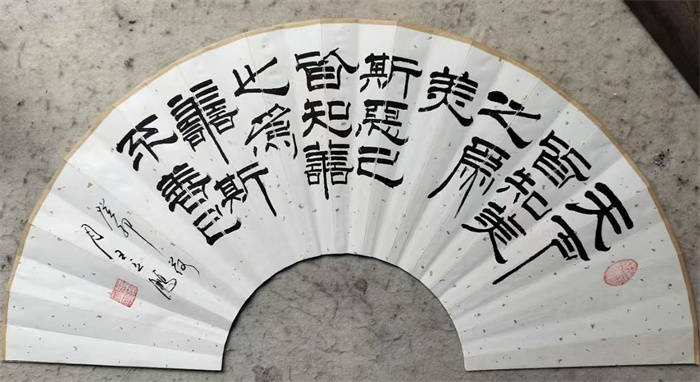 天下
皆知美
之爲
美
斯惡已
皆知善
之爲
善斯
不善已
癸卯